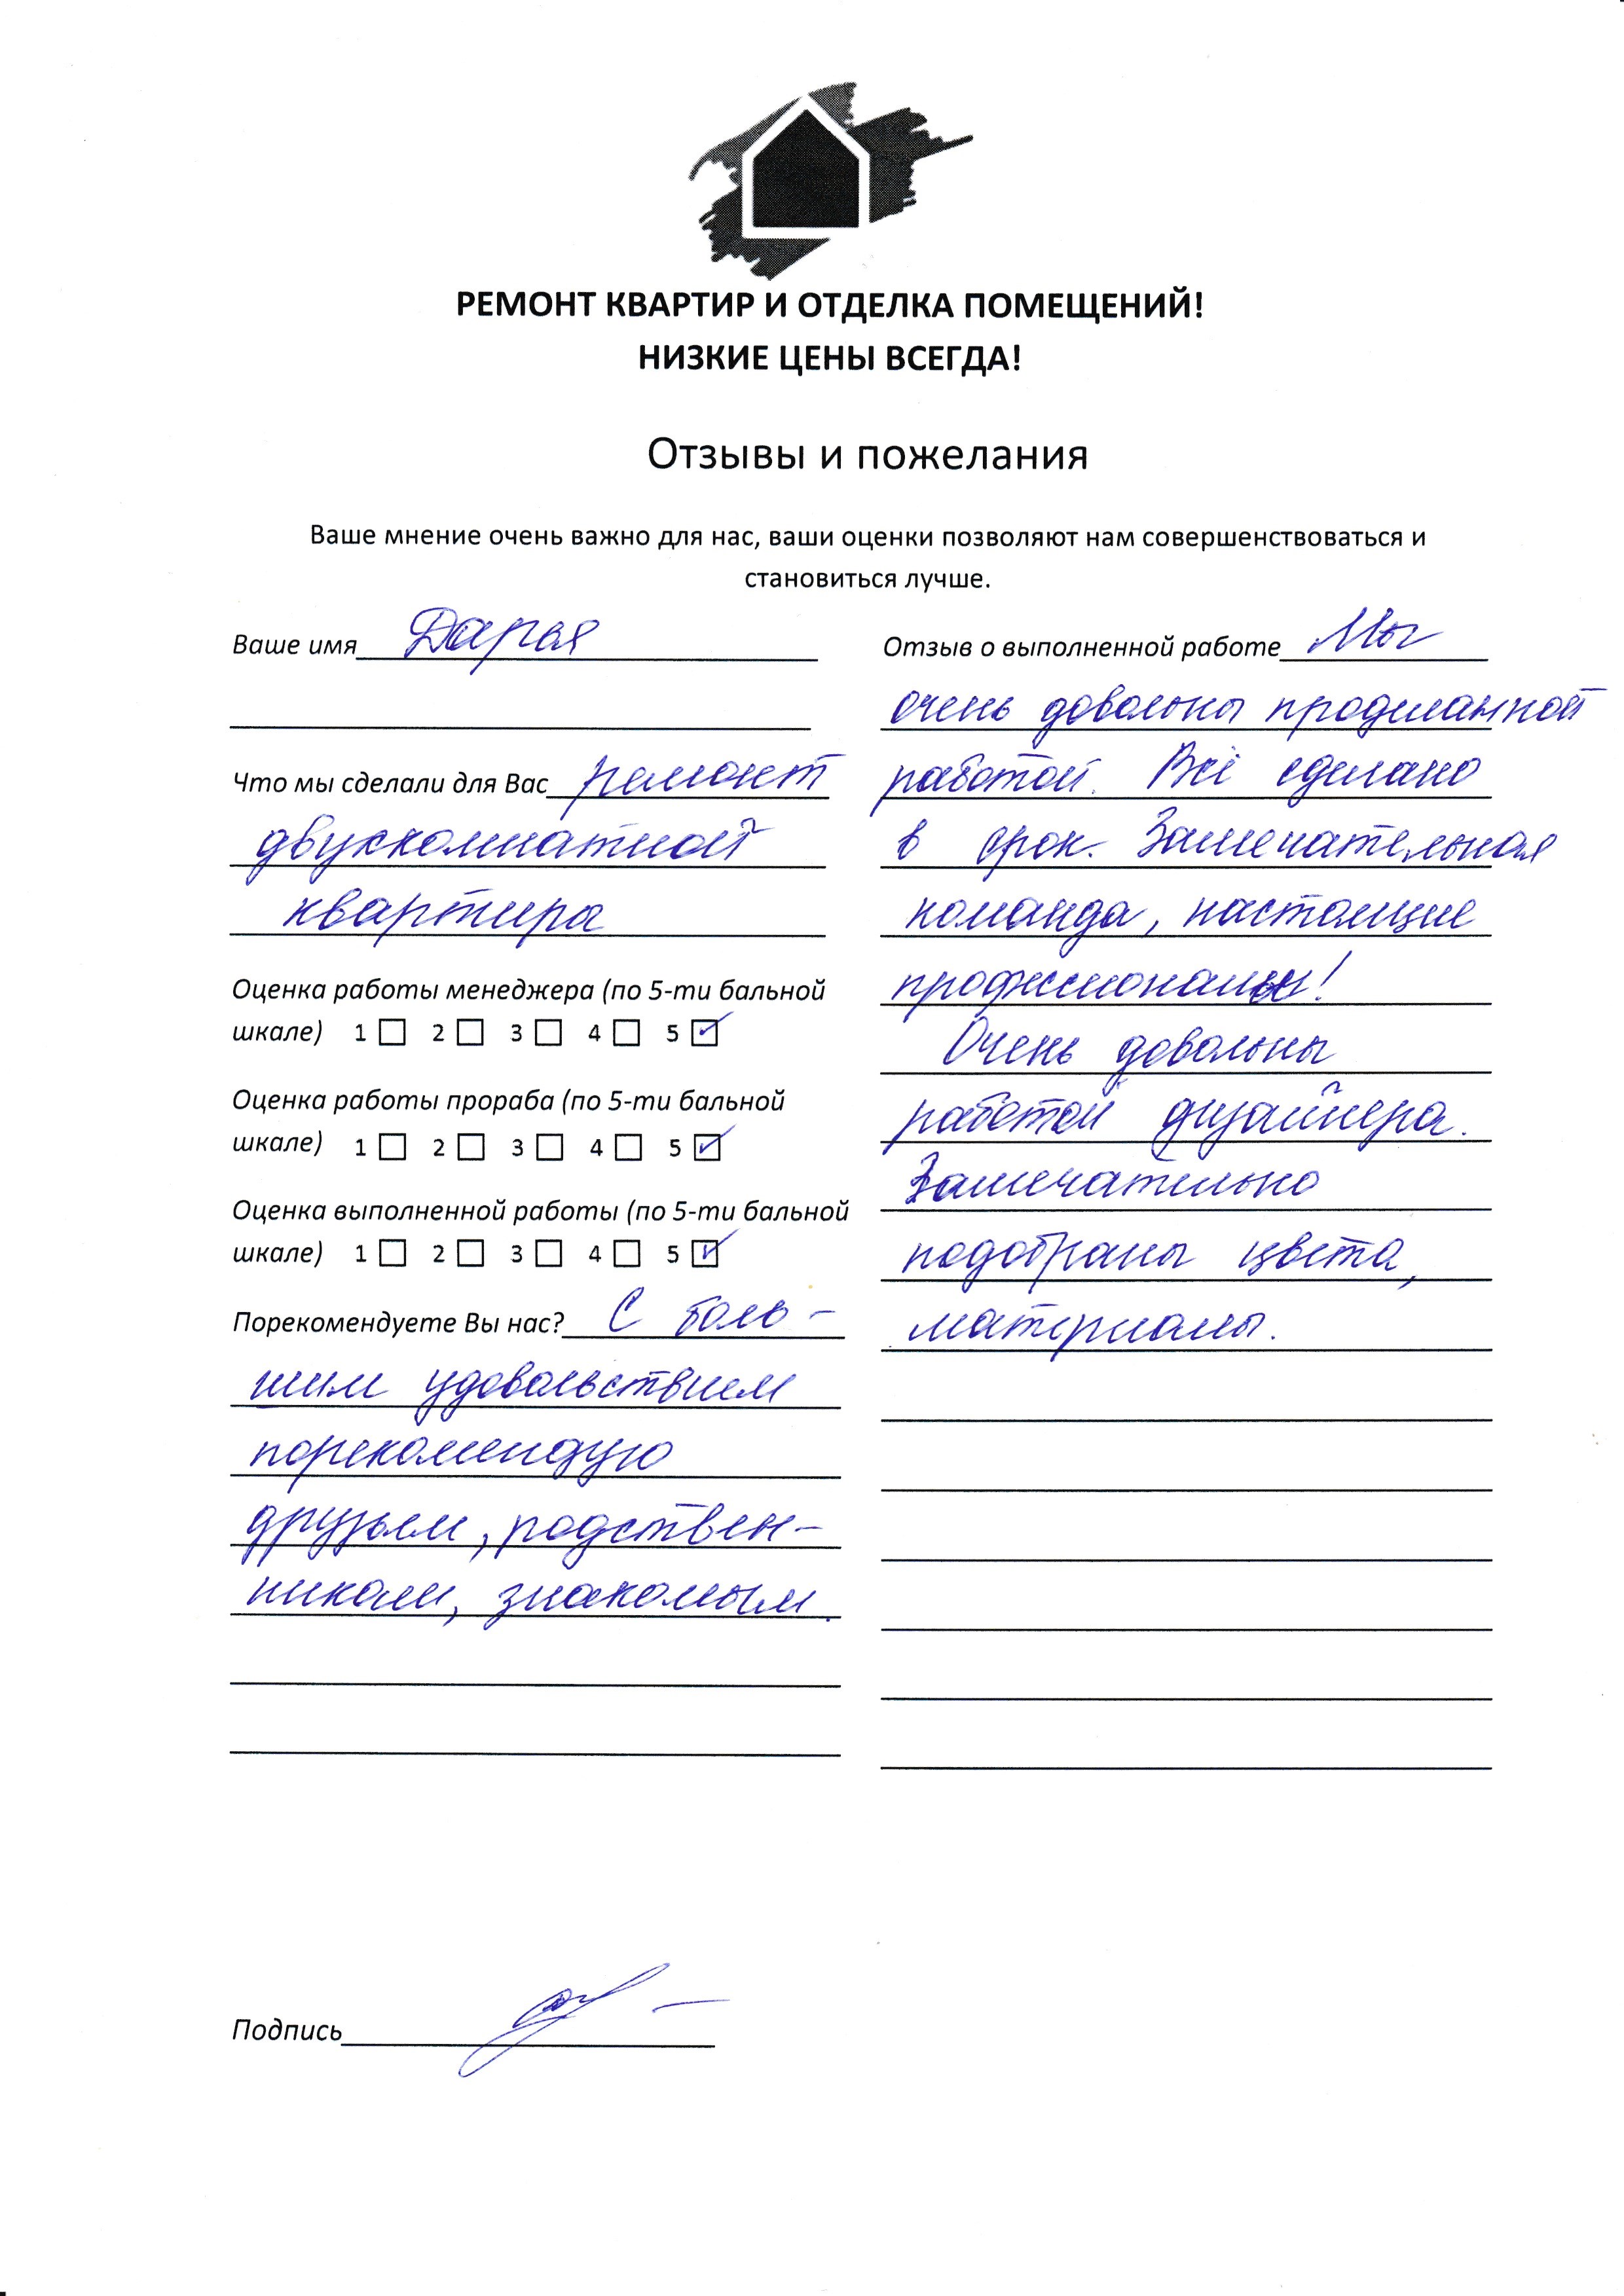 РЕМОНТ КВАРТИР И ОТДЕЛКА ПОМЕЩЕНИЙ!
НИЗКИЕ ЦЕНЫ ВСЕГДА!
Отзывы и пожелания
Ваше мнение очень важно для нас, ваши оценки позволяют нам совершенствоваться и
становиться лучше.
Ваше имя Дарья
Что мы сделали для Вас ремонт
двухкомнатной
квартира
Оценка работы менеджера (по 5-ти бальной
шкале) 1 2 3 4 5
Оценка работы прораба (по 5-ти бальной
шкале) 1 2 3 4 5
Оценка выполненной работы (по 5-ти бальной
шкале) 1 2 3 4 5
Порекомендуете Вы нас? С боль-
шим удовольствием
порекомендую
друзьям, родствен-
никам, знакомым.
Отзыв о выполненной работе Мы
очень довольны проделанной
работой. Всё сделано
в срок. Замечательная
команда, настоящие
профессионалы!
Очень довольны
работой дизайнера.
Замечательно
подобраны цвета,
материалы.
Подпись